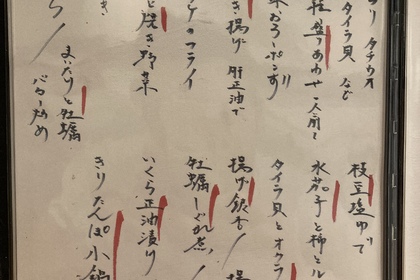 り タチウオ
タイラ貝 など
盛りあわせ 一人前〜
おろしポン酢
き揚げ 肝正油で
のフライ
と焼き野菜
き
まいたけと牡蠣
バター炒め
枝豆塩ゆで
水茄子と柿とル
タイラ貝とオクラ
揚げ銀杏/揚
牡蠣しぐれ煮/
いくら正油漬け
きりたんぽ小鍋